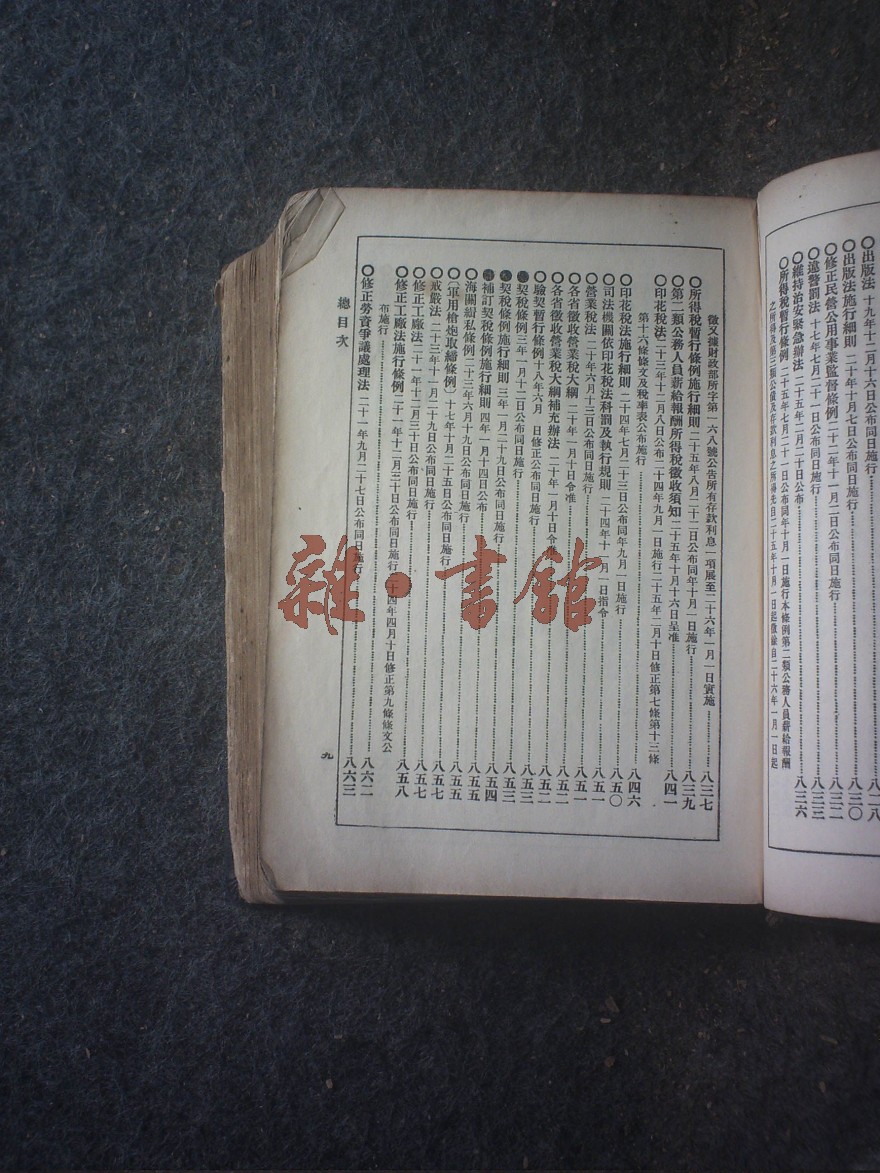 〇出版法 十九年十二月十六日公布同日施行……八二八
〇出版法施行細則 二十年十月七日公布同日施行……八三〇
〇修正民營公用事業監督條例 二十二年十一月二日公布同日施行……八三二
〇違警罰法 十七年七月二十一日公布同日施行……八三三
〇維持治安緊急辦法 二十五年二月二十日公布……八三六
〇所得稅暫行條例 二十五年七月二十一日公布同年十月一日施行本條例第二類公務人員薪給報酬
之所得及第三類公債及存款利息之所得先自二十五年十月一日起徵餘自二十六年一月一日起
徵又據財政部所字第一六八號公告所有存款利息一項展至二十六年一月一日實施……八三七
〇所得稅暫行條例施行細則 二十五年八月二十二日公布同年十月一日施行……八三九
〇第二類公務人員薪給報酬所得稅徵收須知 二十五年十月十六日呈准……八四一
〇印花稅法 二十三年十二月八日公布二十四年九月一日施行二十五年二月十日修正第七條第十三條
第十六條條文及稅率表公布施行……八四六
〇印花稅法施行細則 二十四年七月二十三日公布同年九月一日施行……八五〇
〇司法機關依印花稅法科罰及執行規則 二十四年十一月一日指令……八五一
〇營業稅法 二十年六月十三日公布同日施行……八五一
〇各省徵收營業稅大綱 二十年一月十日令准……八五二
〇各省徵收營業稅大綱補充辦法 二十年一月十日令准……八五二
〇驗契暫行條例 十八年六月 日修正公布同日施行……八五三
契稅條例 三年一月十二日公布同日施行……八五三
契稅條例施行細則 三年一月二十九日公布同日施行……八五四
補訂契稅條例施行細則 四年一月十四日公布……八五四
〇海關緝私條例 二十三年六月十九日公布同日施行……八五五
〇〔軍用槍炮取締條例〕 十七年十月二十五日公布同日施行……八五五
〇戒嚴法 二十三年十一月二十九日公布同日施行……八五七
〇修正工廠法 二十一年十二月三十日公布同日施行……八五七
〇修正工廠法施行條例 二十一年十二月三十日公布同日施行二十四年四月十日修正第九條條文公
布施行……八六二
〇修正勞資爭議處理法 二十一年九月二十七日公布同日施行……八六三
總目次
九
雜·書館